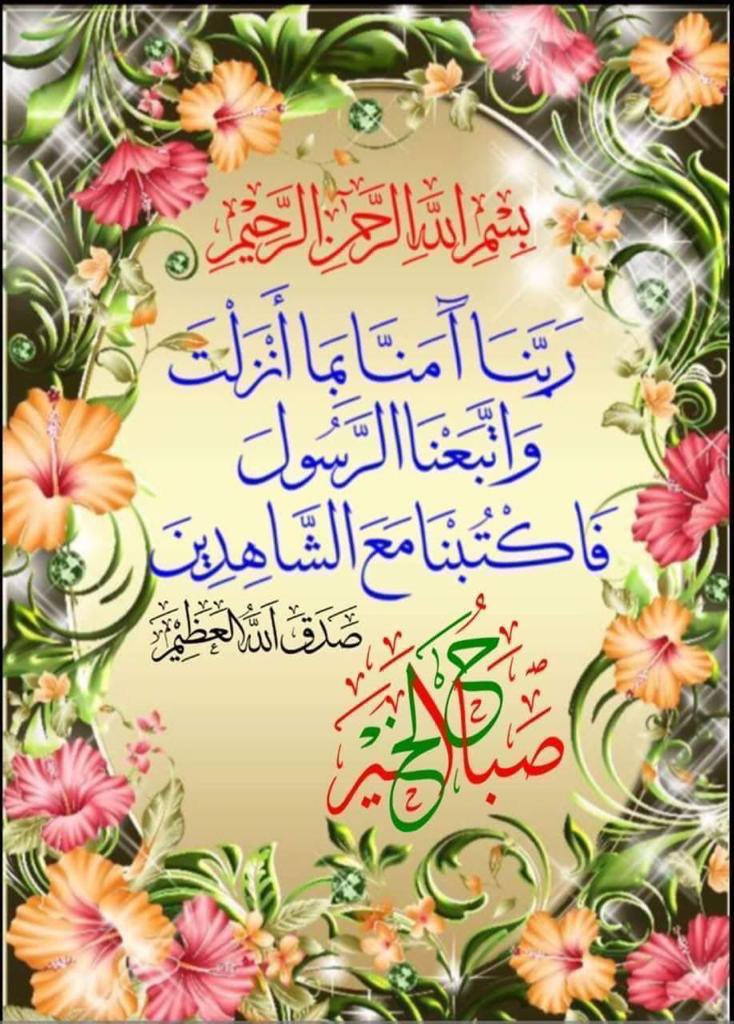 بِسْمِ اللَّهِ الرَّحْمَٰنِ الرَّحِيْمِ
رَبَّنَا آمَنَّا بِمَا أَنْزَلْتَ
وَاتَّبَعْنَا الرَّسُولَ
فَاكْتُبْنَا مَعَ الشَّاهِدِينَ
صَدَقَ اللَّهُ الْعَظِيْمُ
صَبَاحُ الْخَيْرِ